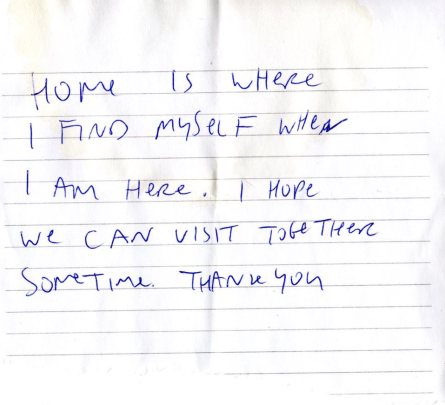 HOME IS WHERE
I FIND MYSELF WHEN
I AM HERE. I HOPE
WE CAN VISIT TOGETHER
SOMETIME. THANK YOU